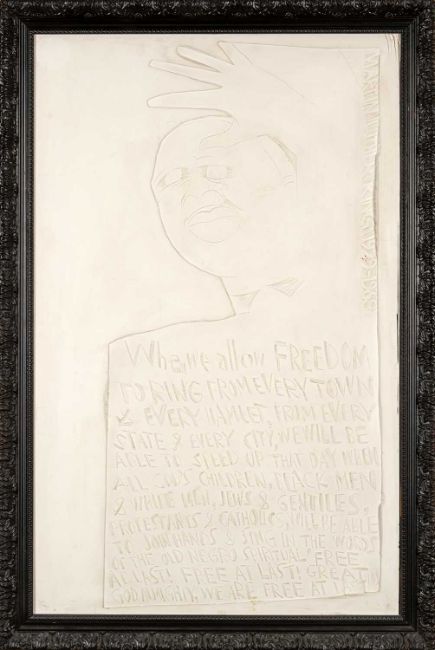 When we allow FREEDOM
TO RING FROM EVERY TOWN
& EVERY HAMLET, FROM EVERY
STATE & EVERY CITY, WE WILL BE
ABLE TO SPEED UP THAT DAY WHEN
ALL GOD'S CHILDREN, BLACK MEN
& WHITE MEN, JEWS & GENTILES,
PROTESTANTS & CATHOLICS, WILL BE ABLE
TO JOIN HANDS & SING IN THE WORDS
OF THE OLD NEGRO SPIRITUAL: FREE
AT LAST! FREE AT LAST! GREAT
GOD ALMIGHTY, WE ARE FREE AT LAST